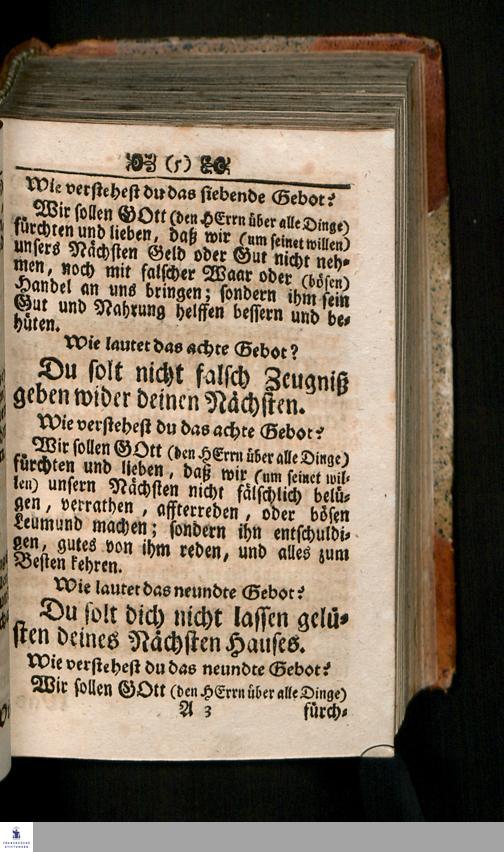 (5)
Wie verstehest du das siebende Gebot?
Wir sollen GOtt (den HErrn über alle Dinge)
fürchten und lieben, daß wir (um seinet willen)
unsers Nächsten Geld oder Gut nicht neh-
men, noch mit falscher Waar oder (bösen)
Handel an uns bringen; sondern ihm sein
Gut und Nahrung helffen bessern und be-
hüten.
Wie lautet das achte Gebot?
Du solt nicht falsch Zeugniß
geben wider deinen Nächsten.
Wie verstehest du das achte Gebot?
Wir sollen GOtt (den HErrn über alle Dinge)
fürchten und lieben, daß wir (um seinet wil-
len) unsern Nächsten nicht fälschlich belü-
gen, verrathen, affterreden, oder bösen
Leumund machen; sondern ihn entschuldi-
gen, gutes von ihm reden, und alles zum
Besten kehren.
Wie lautet das neundte Gebot?
Du solt dich nicht lassen gelü-
sten deines Nächsten Hauses.
Wie verstehest du das neundte Gebot?
Wir sollen GOtt (den HErrn über alle Dinge)
A 3 fürch-
FRANCKESCHE
STIFTUNGEN